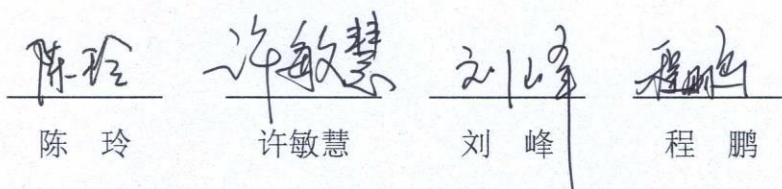 陈玲 许敏慧 刘峰 程鹏
陈 玲 许敏慧 刘 峰 程 鹏